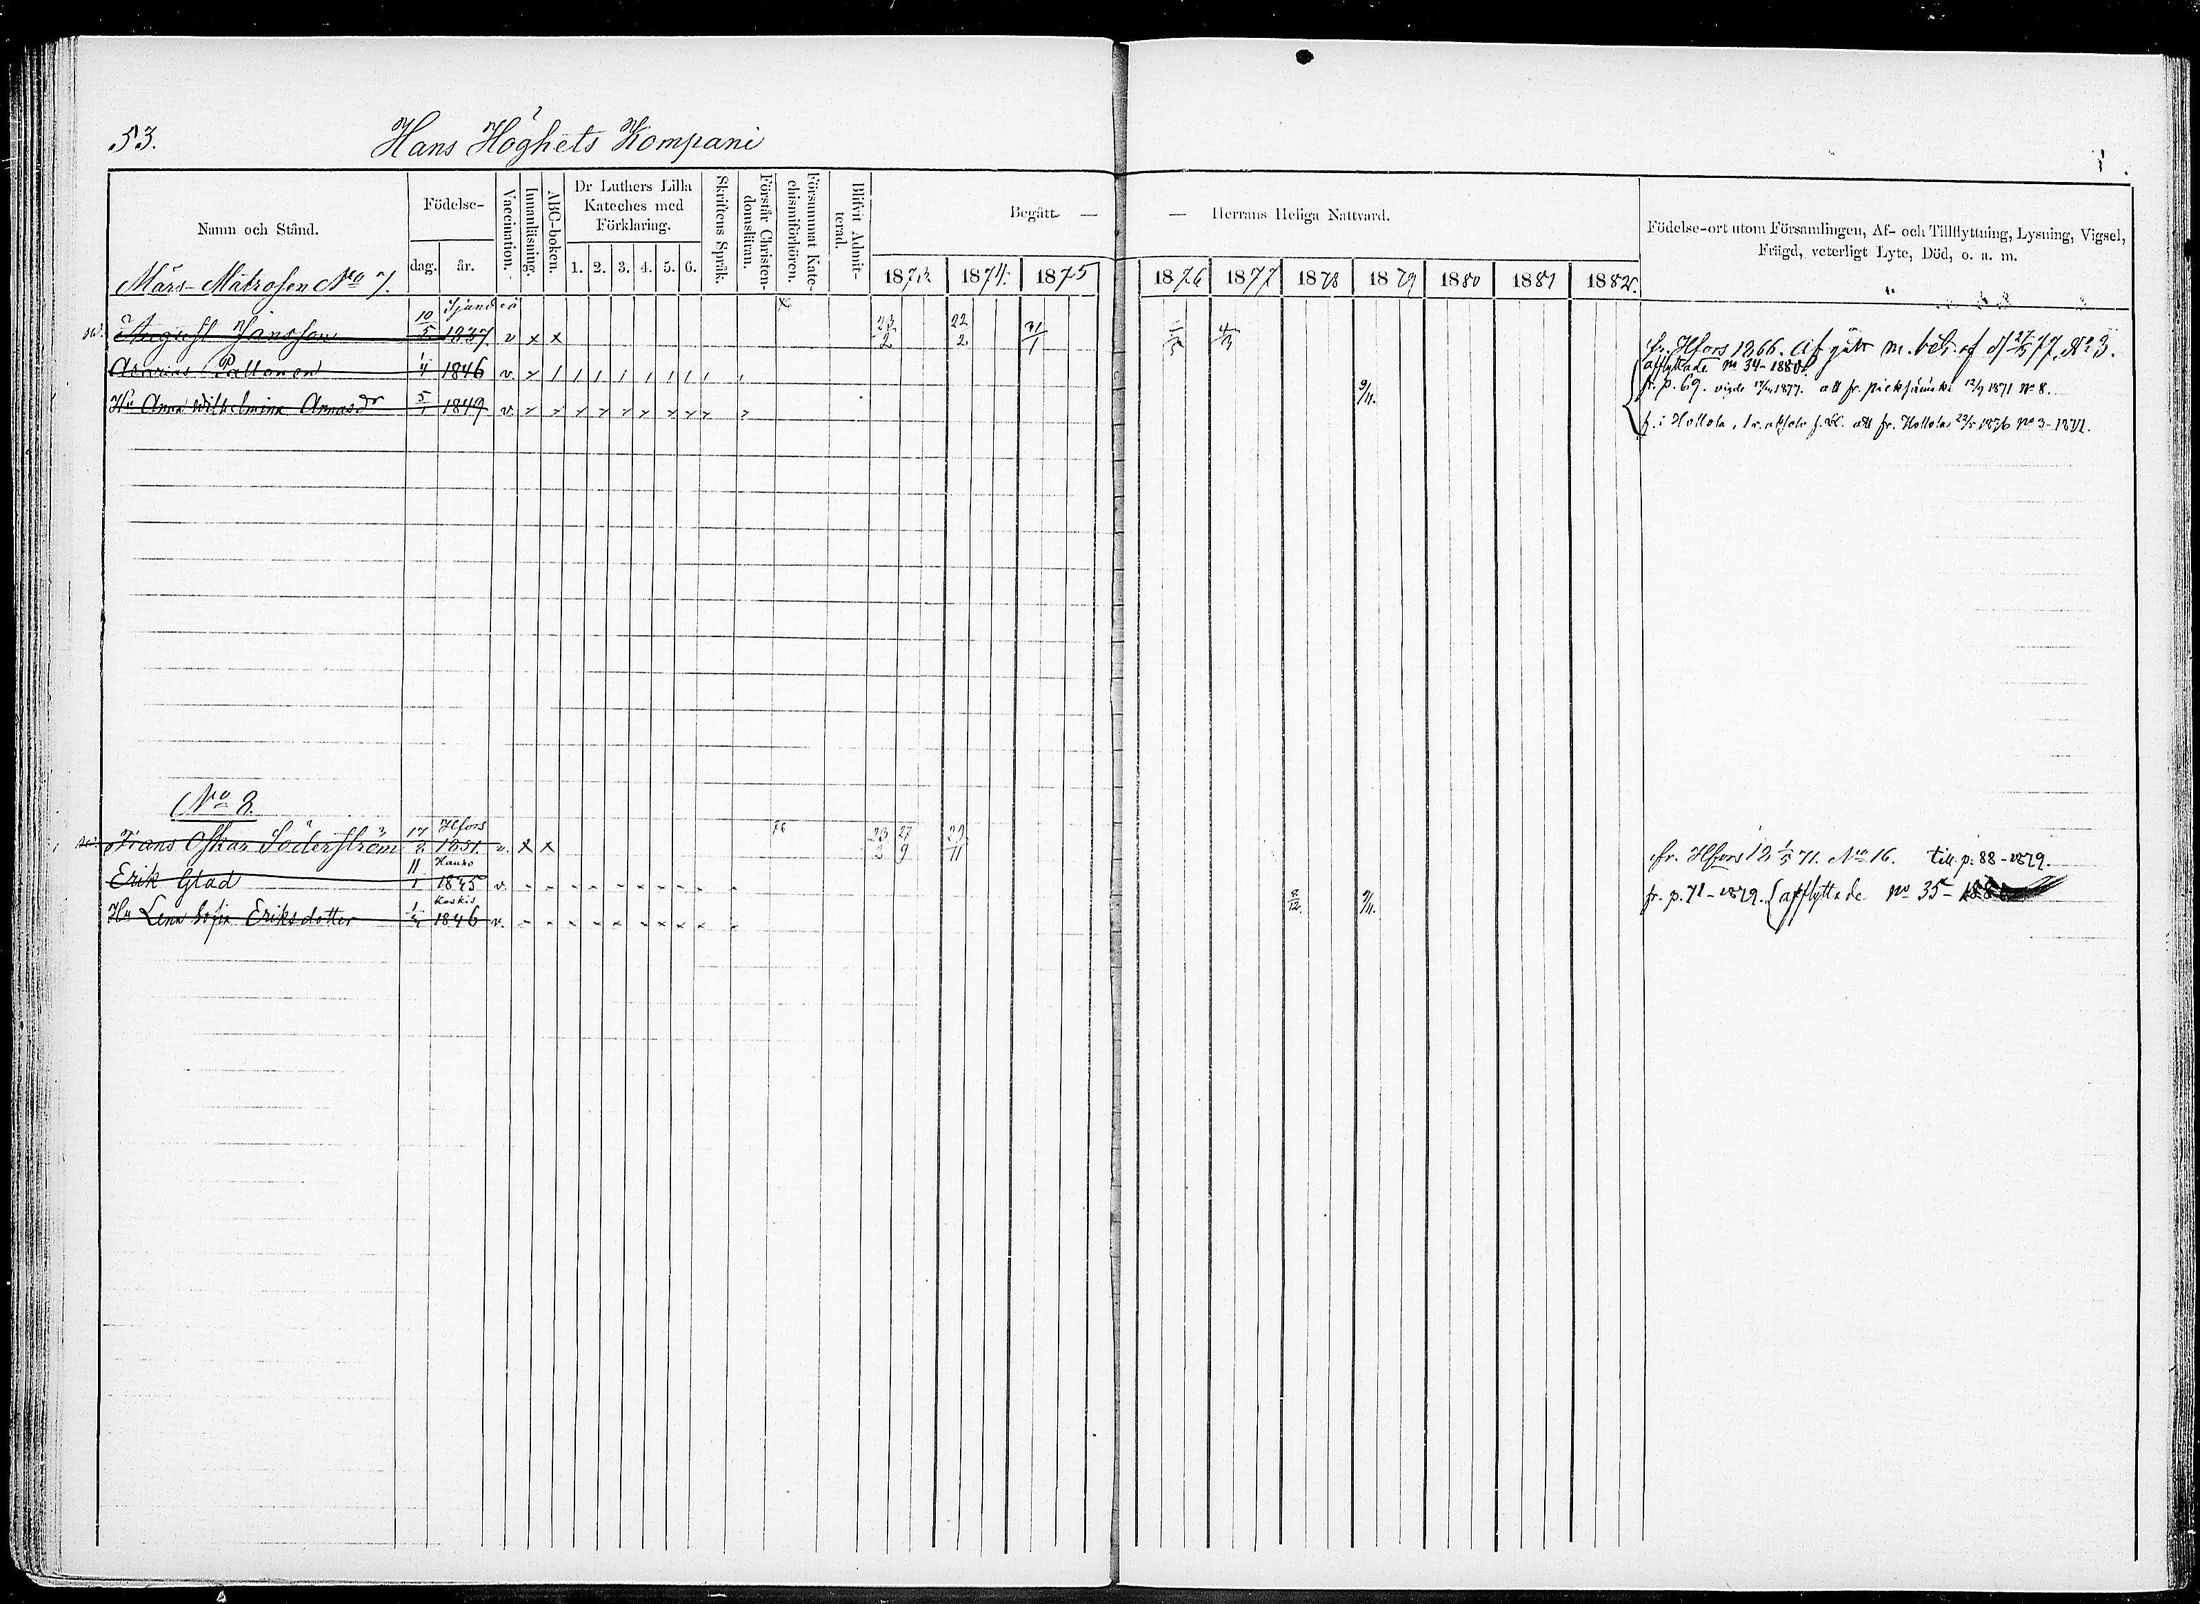 53. Hans Höghets Kompani
Namn och Stånd.
Födelse-
dag. år.
Vaccination.
Innanläsning.
ABC-boken.
Dr Luthers Lilla
Kateches med
Förklaring.
1. 2. 3. 4. 5. 6.
Skriftens Språk.
Förstår Christen-
domsläran.
Försummat Kate-
chismiförhören.
Blifvit Admit-
terad.
Begått — — Herrans Heliga Nattvard.
1873 1874. 1875 1876 1877 1878 1879 1880 1881 1882.
Födelse-ort utom Församlingen, Af- och Tillflyttning, Lysning, Vigsel,
Frägd, veterligt Lyte, Död, o. a. m.
Märs-Matrosen No 7.
August Jansson 10/5 1837 v x x 23/2 22/2 31/1 4/3 fr. Hfors 1866. Af gått m. bet. af d 27/5 77. No 3.
afflyttade no 34-1880
Asarias Paltonen 1/4 1846 v. 9/11. fr. p. 69. att fr. 1871 No 8.
Hu Anna Wilhelmina Annasdr 5/1 1849 v. f. i Hollola, att fr. Hollola 1876 No 3
No 8.
Hfors
Frans Oskar Söderström 17/2 1851. v. x x 76 23/2 27/9 22/11 fr. Hfors 12 1/5 71. No 16. till p. 88-1879.
Hauho
Erik Glad 11/1 1845 v. fr. p. 71-1879. afflyttade no 35-
Koskis
Hu Lena Sofia Eriksdotter 1/4 1846 v. 8/12. 9/11.